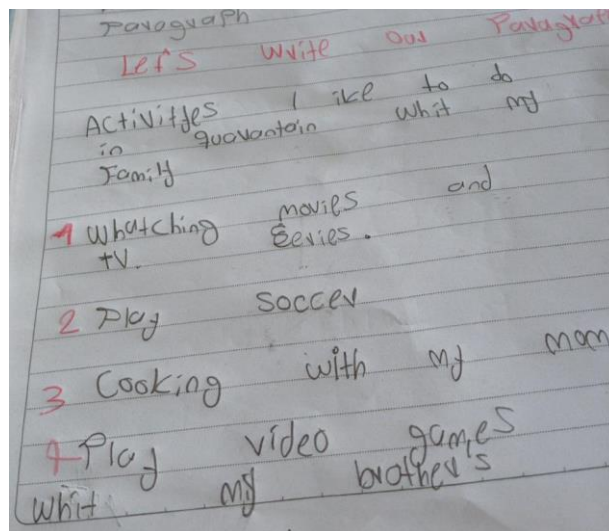 Paragraph
Let's write our Paragraph
Activitjes I ike to do
in quarantain whit my
Family
1 whatching movies and
tv. series.
2 Play soccer
3 Cooking with my mom
4 Play video games
whit my brother's